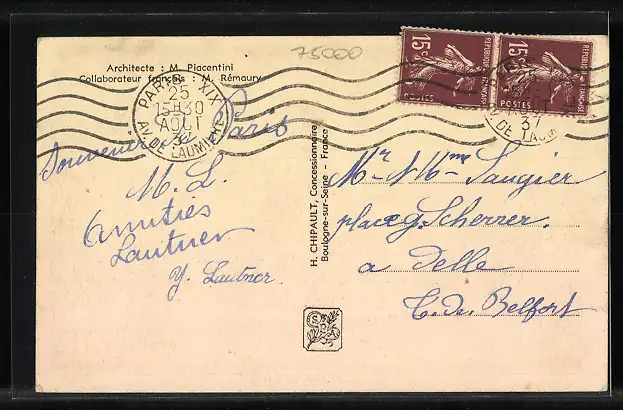 75000
Architecte : M. Piacentini
Collaborateur français : M. Rémaury
PARIS XIX
25
15H30
AOUT
37
AV. DE LAUMIERE
15c
REPUBLIQUE FRANÇAISE
POSTES
15c
REPUBLIQUE FRANÇAISE
POSTES
25
37
AV. DE LAUMIERE
Souvenir de Paris
M. L.
Amitiés
Lautner
Y. Lautner.
H. CHIPAULT, Concessionnaire
Boulogne-sur-Seine - France
Mr & Mme Saugier
place G. Scherrer.
a Delle
T. de Belfort